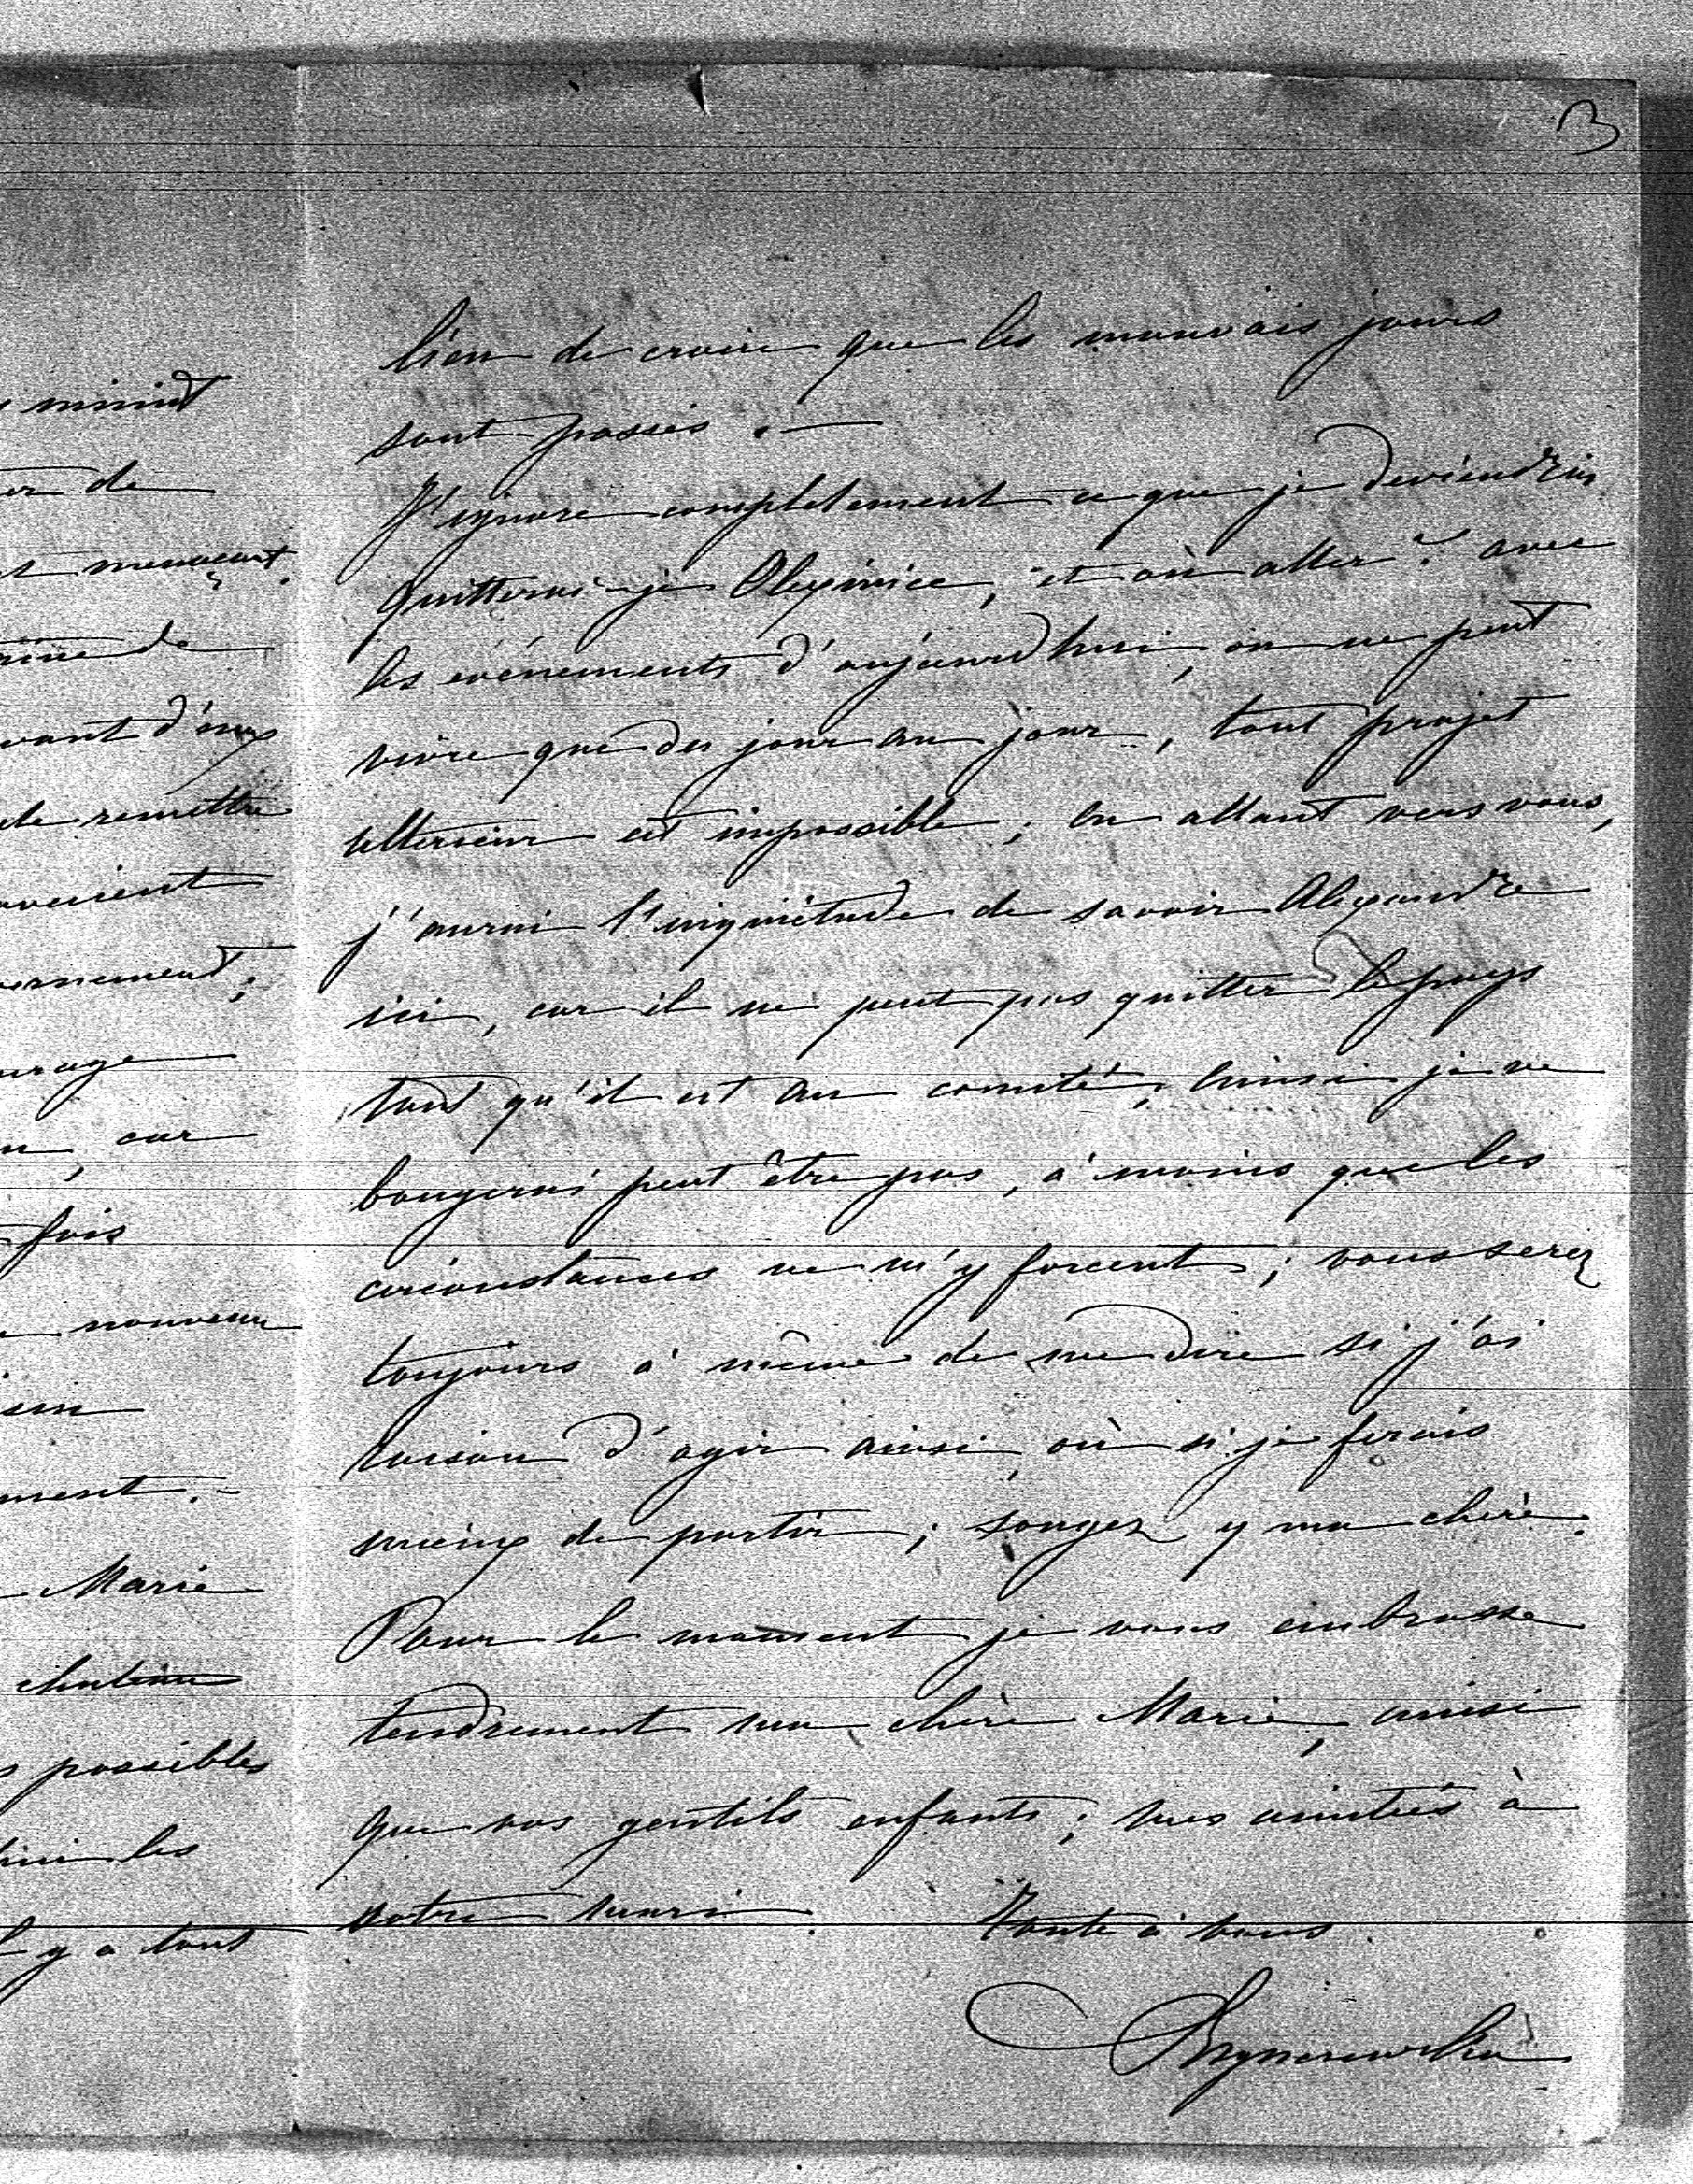 3
minuit
er de
menaçant.
de
vant d'eux
de remettre
avaient
ernement;
urage
, car
fois
nouveau
sin
ment.-
Marie
chateau
possibles
les
y a tout
lieu de croire que les mauvais jours
sont passés. —
J'ignore completement ce que je deviendrai
quitterai-je Olexinice, et où aller? avec
les evénements d'aujourd'hui, on ne peut
vivre que du jour au jour, tout projet
ulterieur est impossible; en allant vers vous,
j'aurai l'inquiétude de savoir Alexandre
ici, car il ne peut pas quitter le pays
tant qu'il est au comité, ainsi je ne
bougerai peut être pas, à moins que les
circonstances ne m'y forcent; vous serez
toujours à même de me dire si j'ai
raison d'agir ainsi, où si je ferais
mieux de partir; songez y ma chère.
Pour le moment je vous embrasse
tendrement ma chère Marie, ainsi
que vos gentils enfants; mes amitiés à
votre mari. Toute à vous.